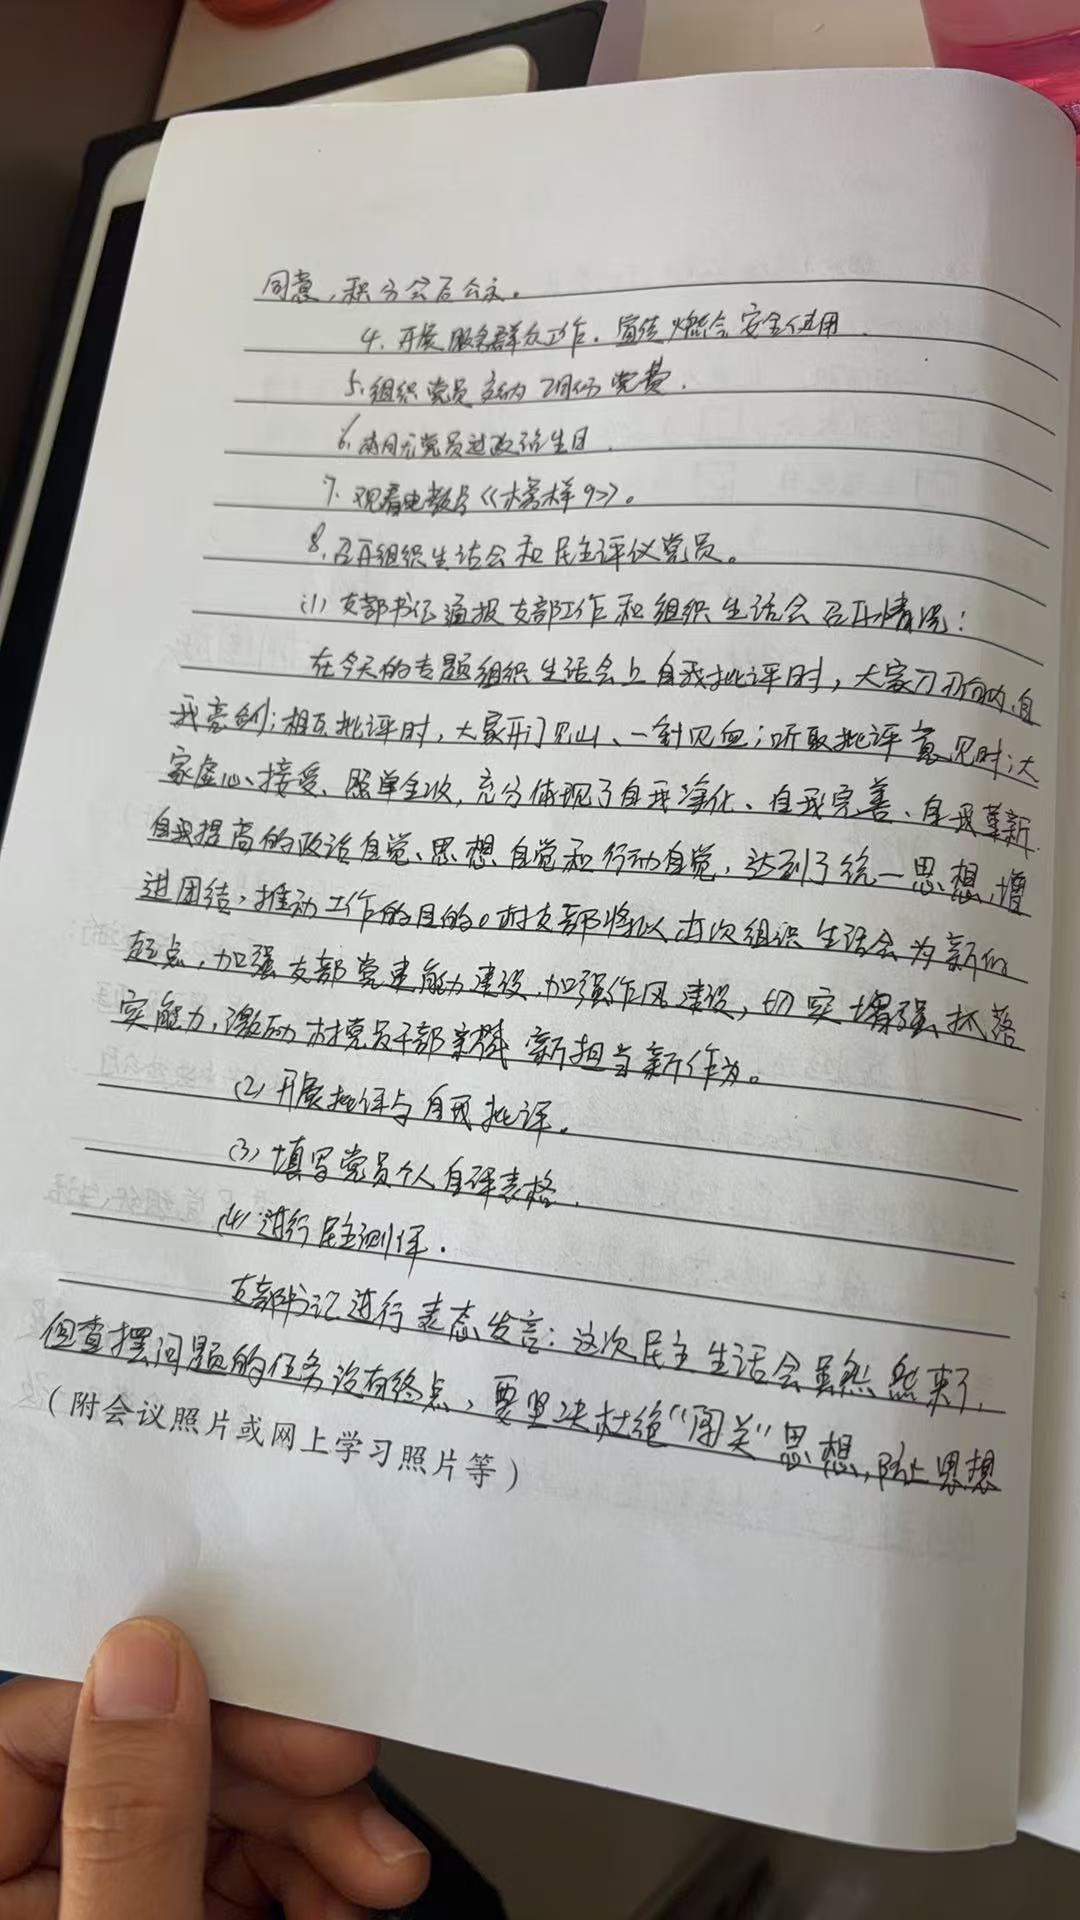 同意，积分会后公示。
4.开展服务群众工作。宣传燃气安全使用.
5.组织党员交纳2月份党费.
6.本月无党员过政治生日.
7.观看电教片《榜样9》。
8.召开组织生活会和民主评议党员。
(1)支部书记通报支部工作和组织生活会召开情况：
在今天的专题组织生活会上自我批评时，大家刀刃向内、自
我亮剑；相互批评时，大家开门见山、一针见血；听取批评意见时；大
家虚心接受、照单全收，充分体现了自我净化、自我完善、自我革新
自我提高的政治自觉、思想自觉和行动自觉，达到了统一思想，增
进团结，推动工作的目的。村支部将以本次组织生活会为新的
起点，加强支部党建能力建设，加强作风建设，切实增强抓落
实能力，激励村党员干部 新担当新作为。
(2)开展批评与自我批评。
(3)填写党员个人自评表格.
(4)进行民主测评.
支部书记进行表态发言：这次民主生活会虽然 束了，
但查摆问题的任务没有终点，要坚决杜绝“闯关”思想，防止思想
（附会议照片或网上学习照片等）